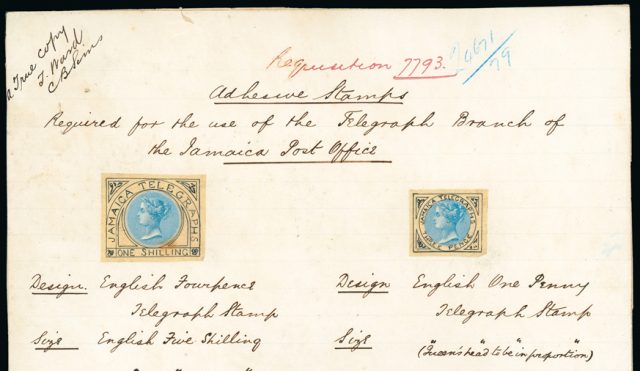 A True copy
J. Ward
Requisition 7793.
Adhesive Stamps
Required for the use of the Telegraph Branch of
the Jamaica Post Office
JAMAICA TELEGRAPHS
ONE SHILLING
JAMAICA TELEGRAPHS
THREE PENCE
Design. English Fourpence
Telegraph Stamp
Size English Five Shilling
Design English One Penny
Telegraph Stamp
Size
("Queen's head" to be "in proportion")